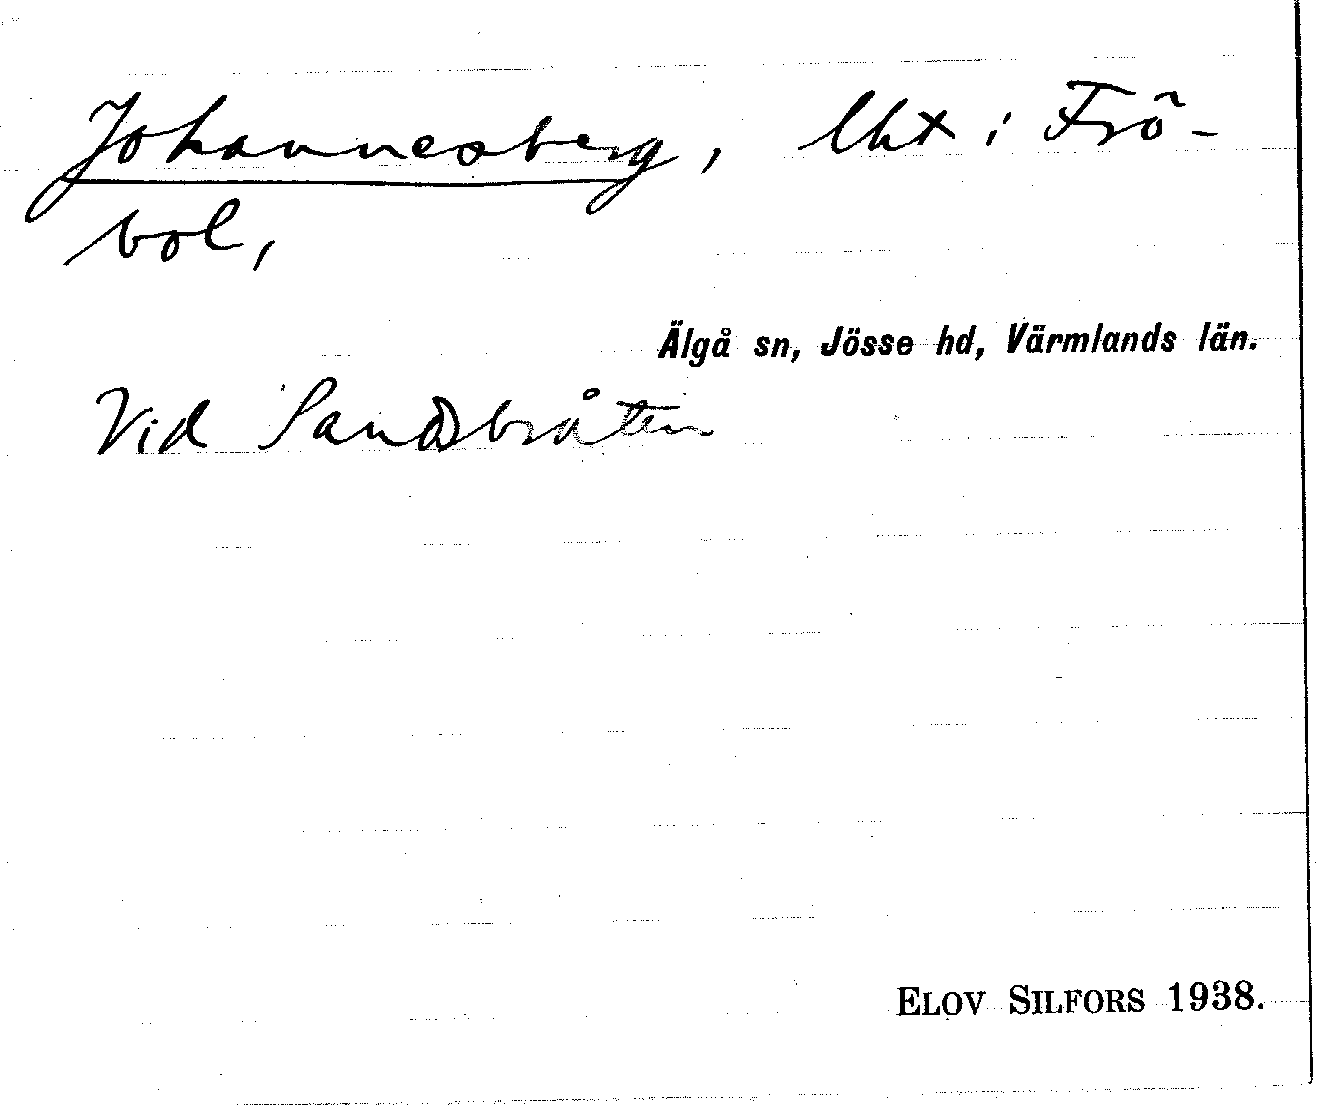 Johannesberg, lht i Frö-
bol,
Älgå sn, Jösse hd, Värmlands län.
Vid Sandbråten
ELOV SILFORS 1938.